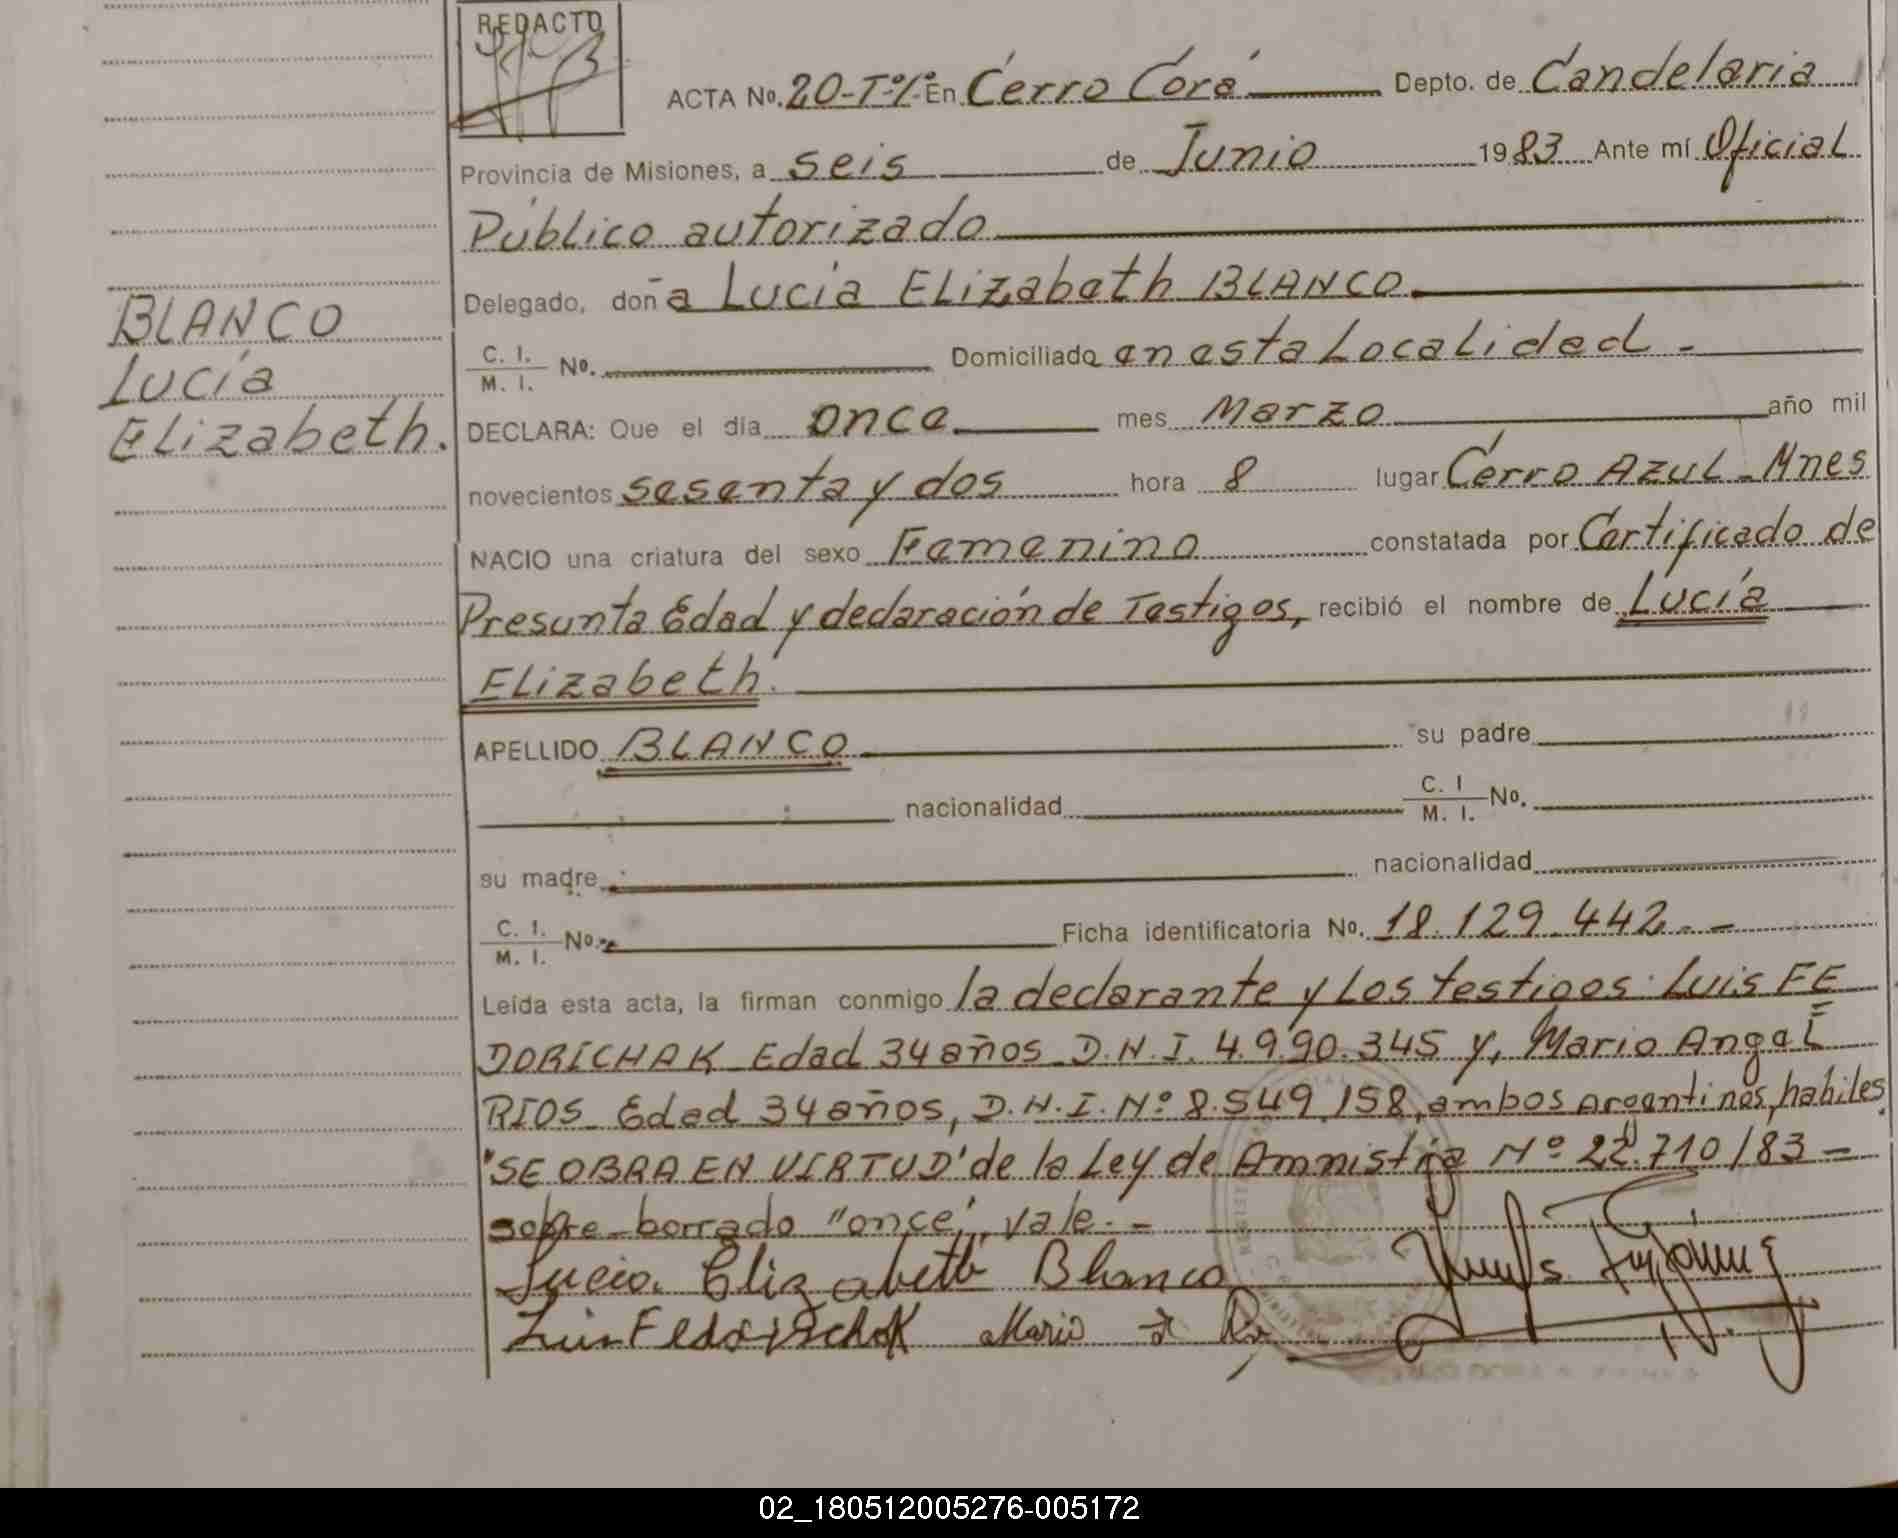 REDACTO
ACTA No. 20-Tº1º En Cerro Corá Depto. de Candelaria
Provincia de Misiones, a seis de Junio 1983 Ante mí Oficial
Público autorizado
Delegado, doña Lucía Elizabeth BLANCO
BLANCO
Lucía
Elizabeth.
C. I. / M. I. No. Domiciliada en esta Localidad -
DECLARA: Que el día once mes Marzo año mil
novecientos sesenta y dos hora 8 lugar Cerro Azul - Mnes
NACIO una criatura del sexo Femenino constatada por Certificado de
Presunta Edad y declaración de Testigos, recibió el nombre de Lucía
Elizabeth.
APELLIDO BLANCO su padre
nacionalidad C. I / M. I. No.
su madre nacionalidad
C. I. / M. I. No. Ficha identificatoria No. 18.129.442.-
Leída esta acta, la firman conmigo la declarante y Los testigos: Luis FE
DORICHAK Edad 34 años D.N.I. 4.990.345 y, Mario Angel
RIOS Edad 34 años, D.N.I. Nº 8.549.158, ambos Argentinos, habiles
"SE OBRA EN VIRTUD" de la Ley de Amnistía Nº 22.710/83 -
sobre-borrado "once", vale.-
Lucia Elizabeth Blanco
Luis Fedorischak Mario
02_180512005276-005172